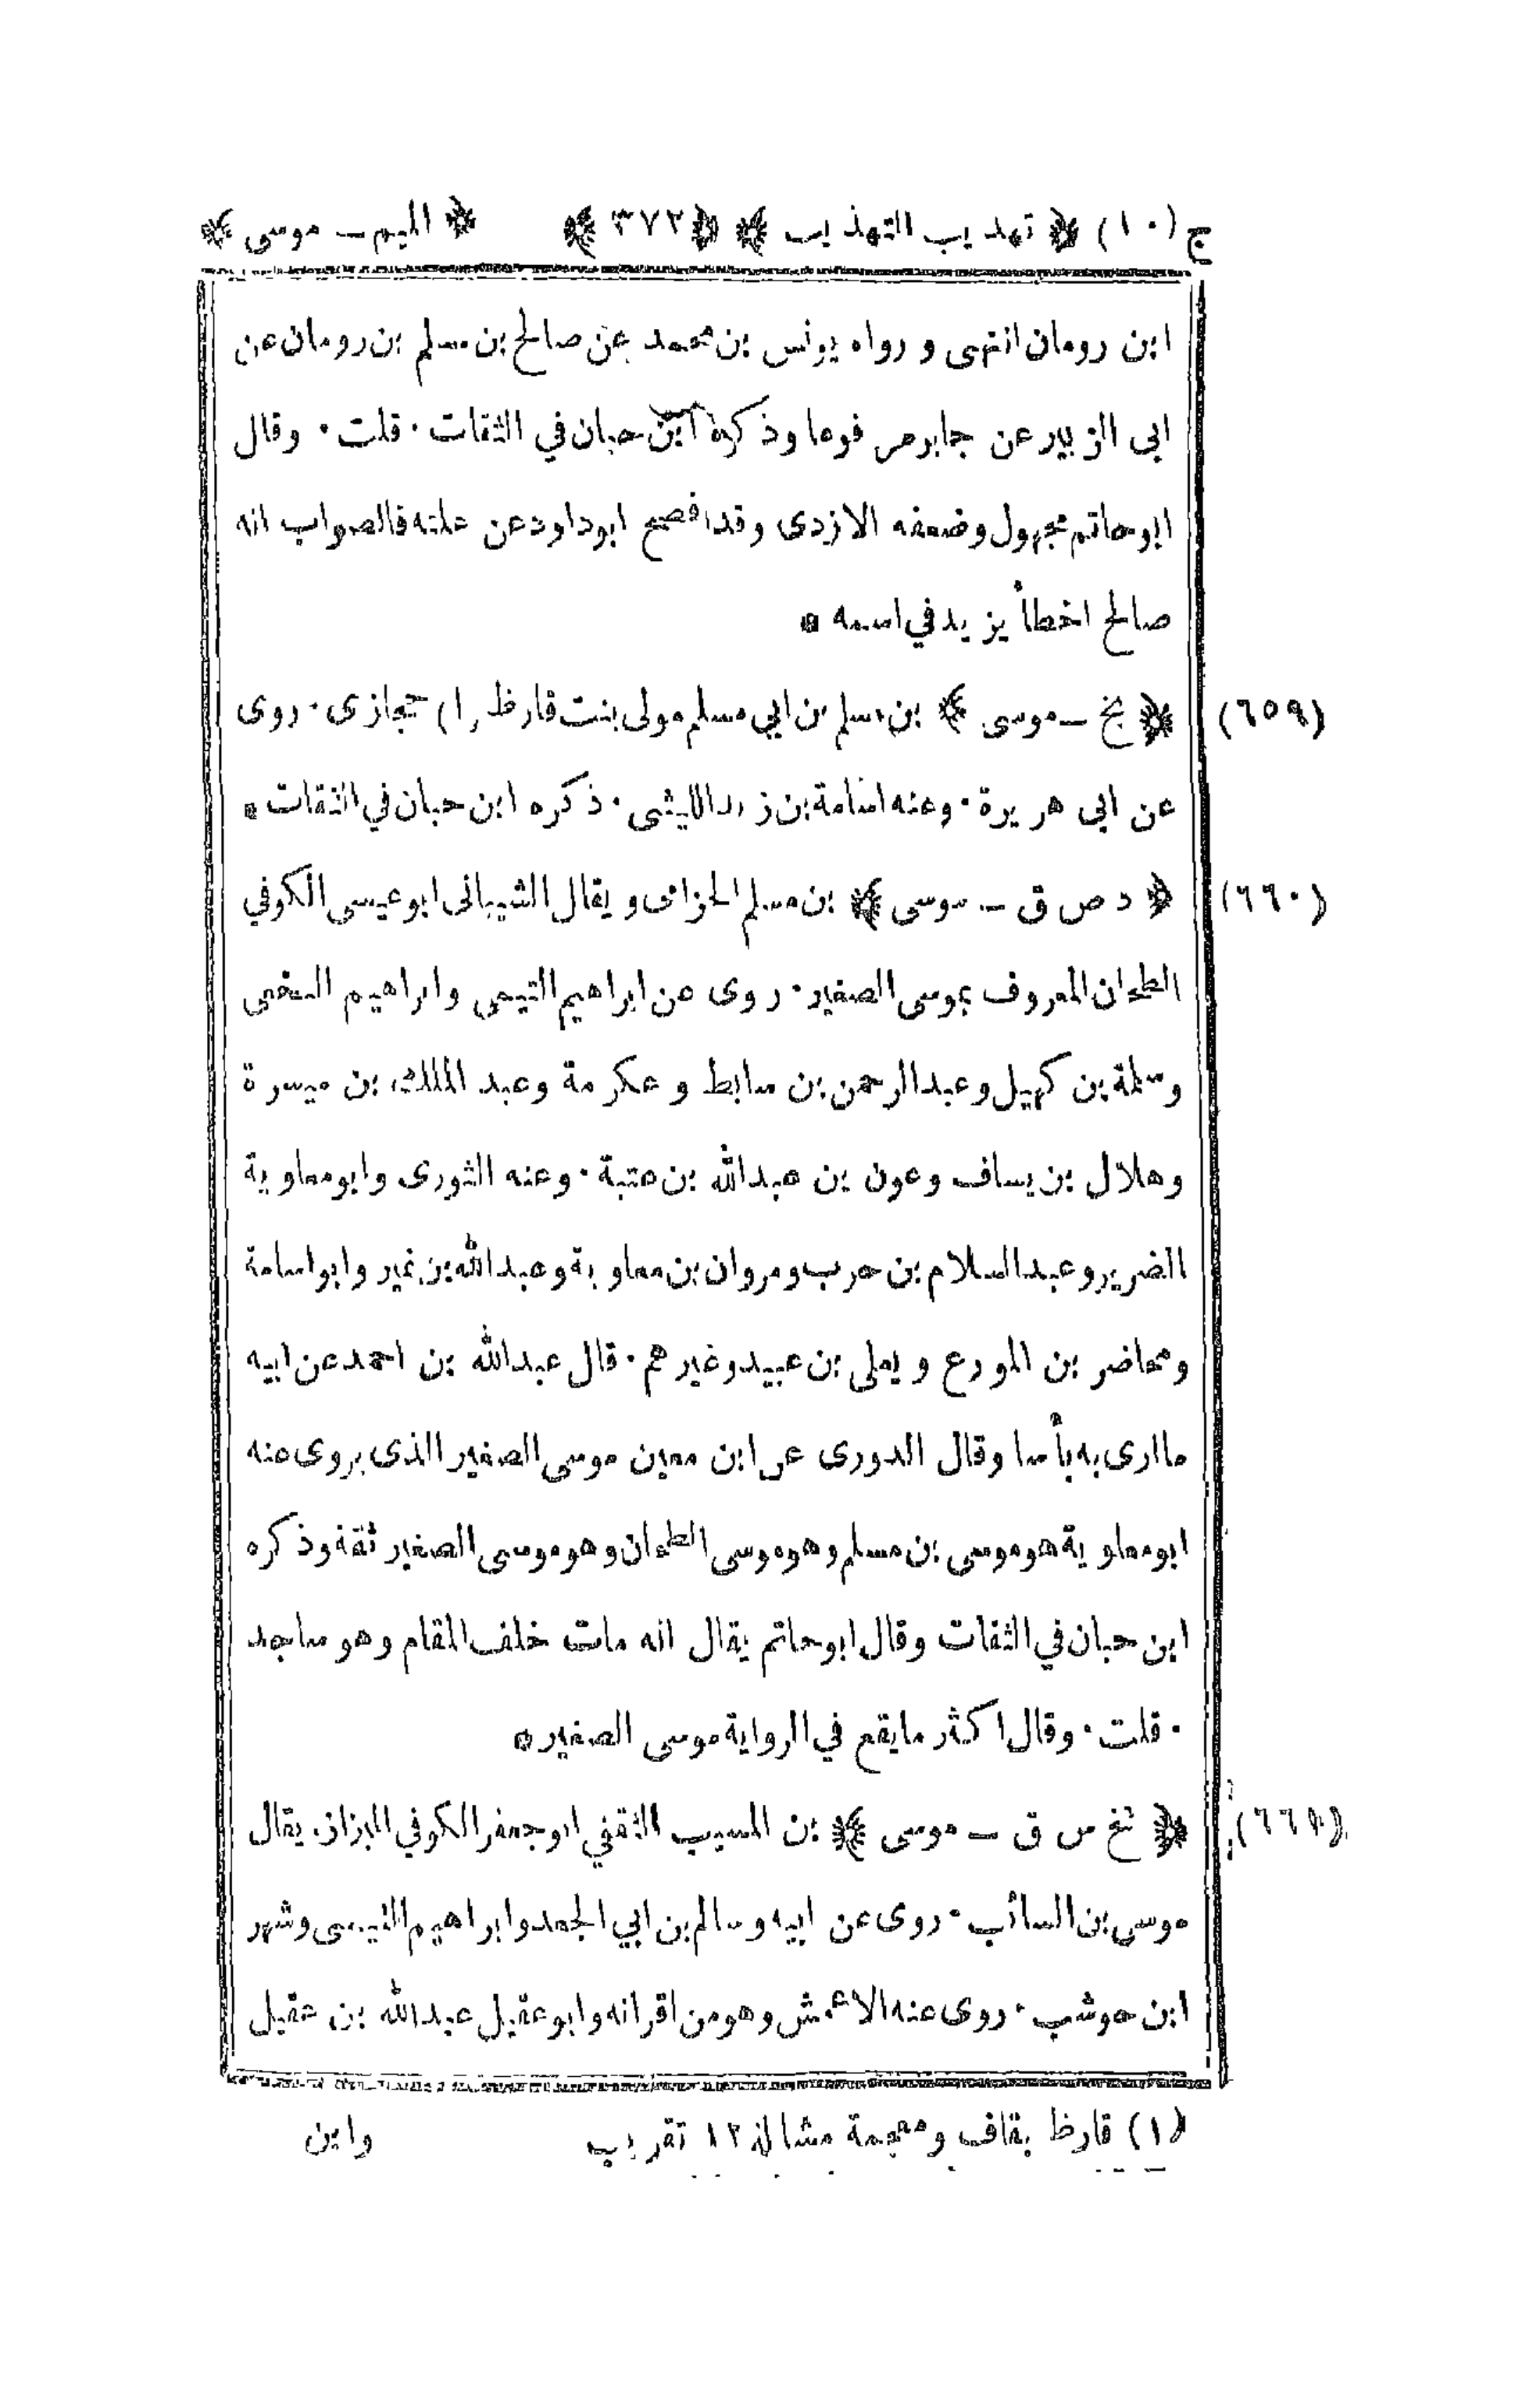 ج (١٠) ﴿ تهذيب التهذيب ﴾ ﴿ ٣٧٢ ﴾ ﴿ الميم ــ موسى ﴾
ابن رومان انتهى ورواه يونس بن محمد عن صالح بن مسلم بن رومان عن
ابى الزبير عن جابر مرفوعا وذكره ابن حبان في الثقات . قلت . وقال
ابوحاتم مجهول وضعفه الازدى وقد افصح ابوداود عن علته فالصواب انه
صالح اخطأ يزيد في اسمه
(٦٥٩) ﴿ بخ ــ موسى ﴾ بن مسلم بن ابي مسلم مولى بنت قارظ (١) حجازى . روى
عن ابى هريرة . وعنه اسامة بن زيد الليثى . ذكره ابن حبان في الثقات
(٦٦٠) ﴿ د ص ق ــ موسى ﴾ بن مسلم الحزامى ويقال الشيبانى ابوعيسى الكوفي
الطحان المعروف بموسى الصغير . روى عن ابراهيم التيمى وابراهيم النخعى
وسلمة بن كهيل وعبدالرحمن بن سابط وعكرمة وعبد الملك بن ميسرة
وهلال بن يساف وعون بن عبدالله بن عتبة . وعنه الثورى وابومعاوية
الضرير وعبدالسلام بن حرب ومروان بن معاوية وعبدالله بن نمير وابواسامة
ومحاضر بن المورع ويعلى بن عبيد وغيرهم . قال عبدالله بن احمد عن ابيه
ماارى به بأسا وقال الدورى عن ابن معين موسى الصغير الذى يروى عنه
ابومعاوية هو موسى بن مسلم وهو موسى الطحان وهو موسى الصغير ثقة وذكره
ابن حبان في الثقات وقال ابوحاتم يقال انه مات خلف المقام وهو ساجد
. قلت . وقال اكثر مايقع في الرواية موسى الصغير
(٦٦١) ﴿ بخ س ق ــ موسى ﴾ بن المسيب الثقفي ابوجعفر الكوفي البزاز . يقال
موسى بن السائب . روى عن ابيه وسالم بن ابي الجعد وابراهيم التيمى وشهر
ابن حوشب . روى عنه الاعمش وهو من اقرانه وابوعقيل عبدالله بن عقيل
(١) قارظ بقاف ومعجمة مشالة ١٢ تقريب وابن